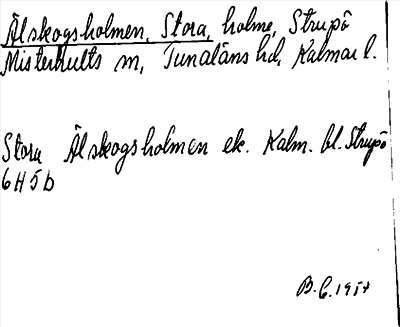 Älskogsholmen, Stora, holme, Strupö
Misterhults sn, Tunaläns hd, Kalmar l.
Stora Älskogsholmen ek. Kalm. bl. Strupö
6H5b
B.C. 1954